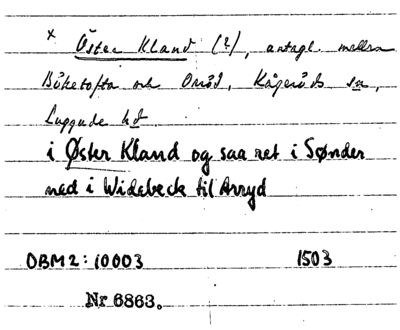 x Öster Kland (?), antagl. mellan
Böketofta och Onsö, Kågeröds sn,
Luggude hd.
i Øster Kland og saa ret i Sønder
ned i Widebeck til Arryd
OBM2: 10003 1503
Nr 6863.